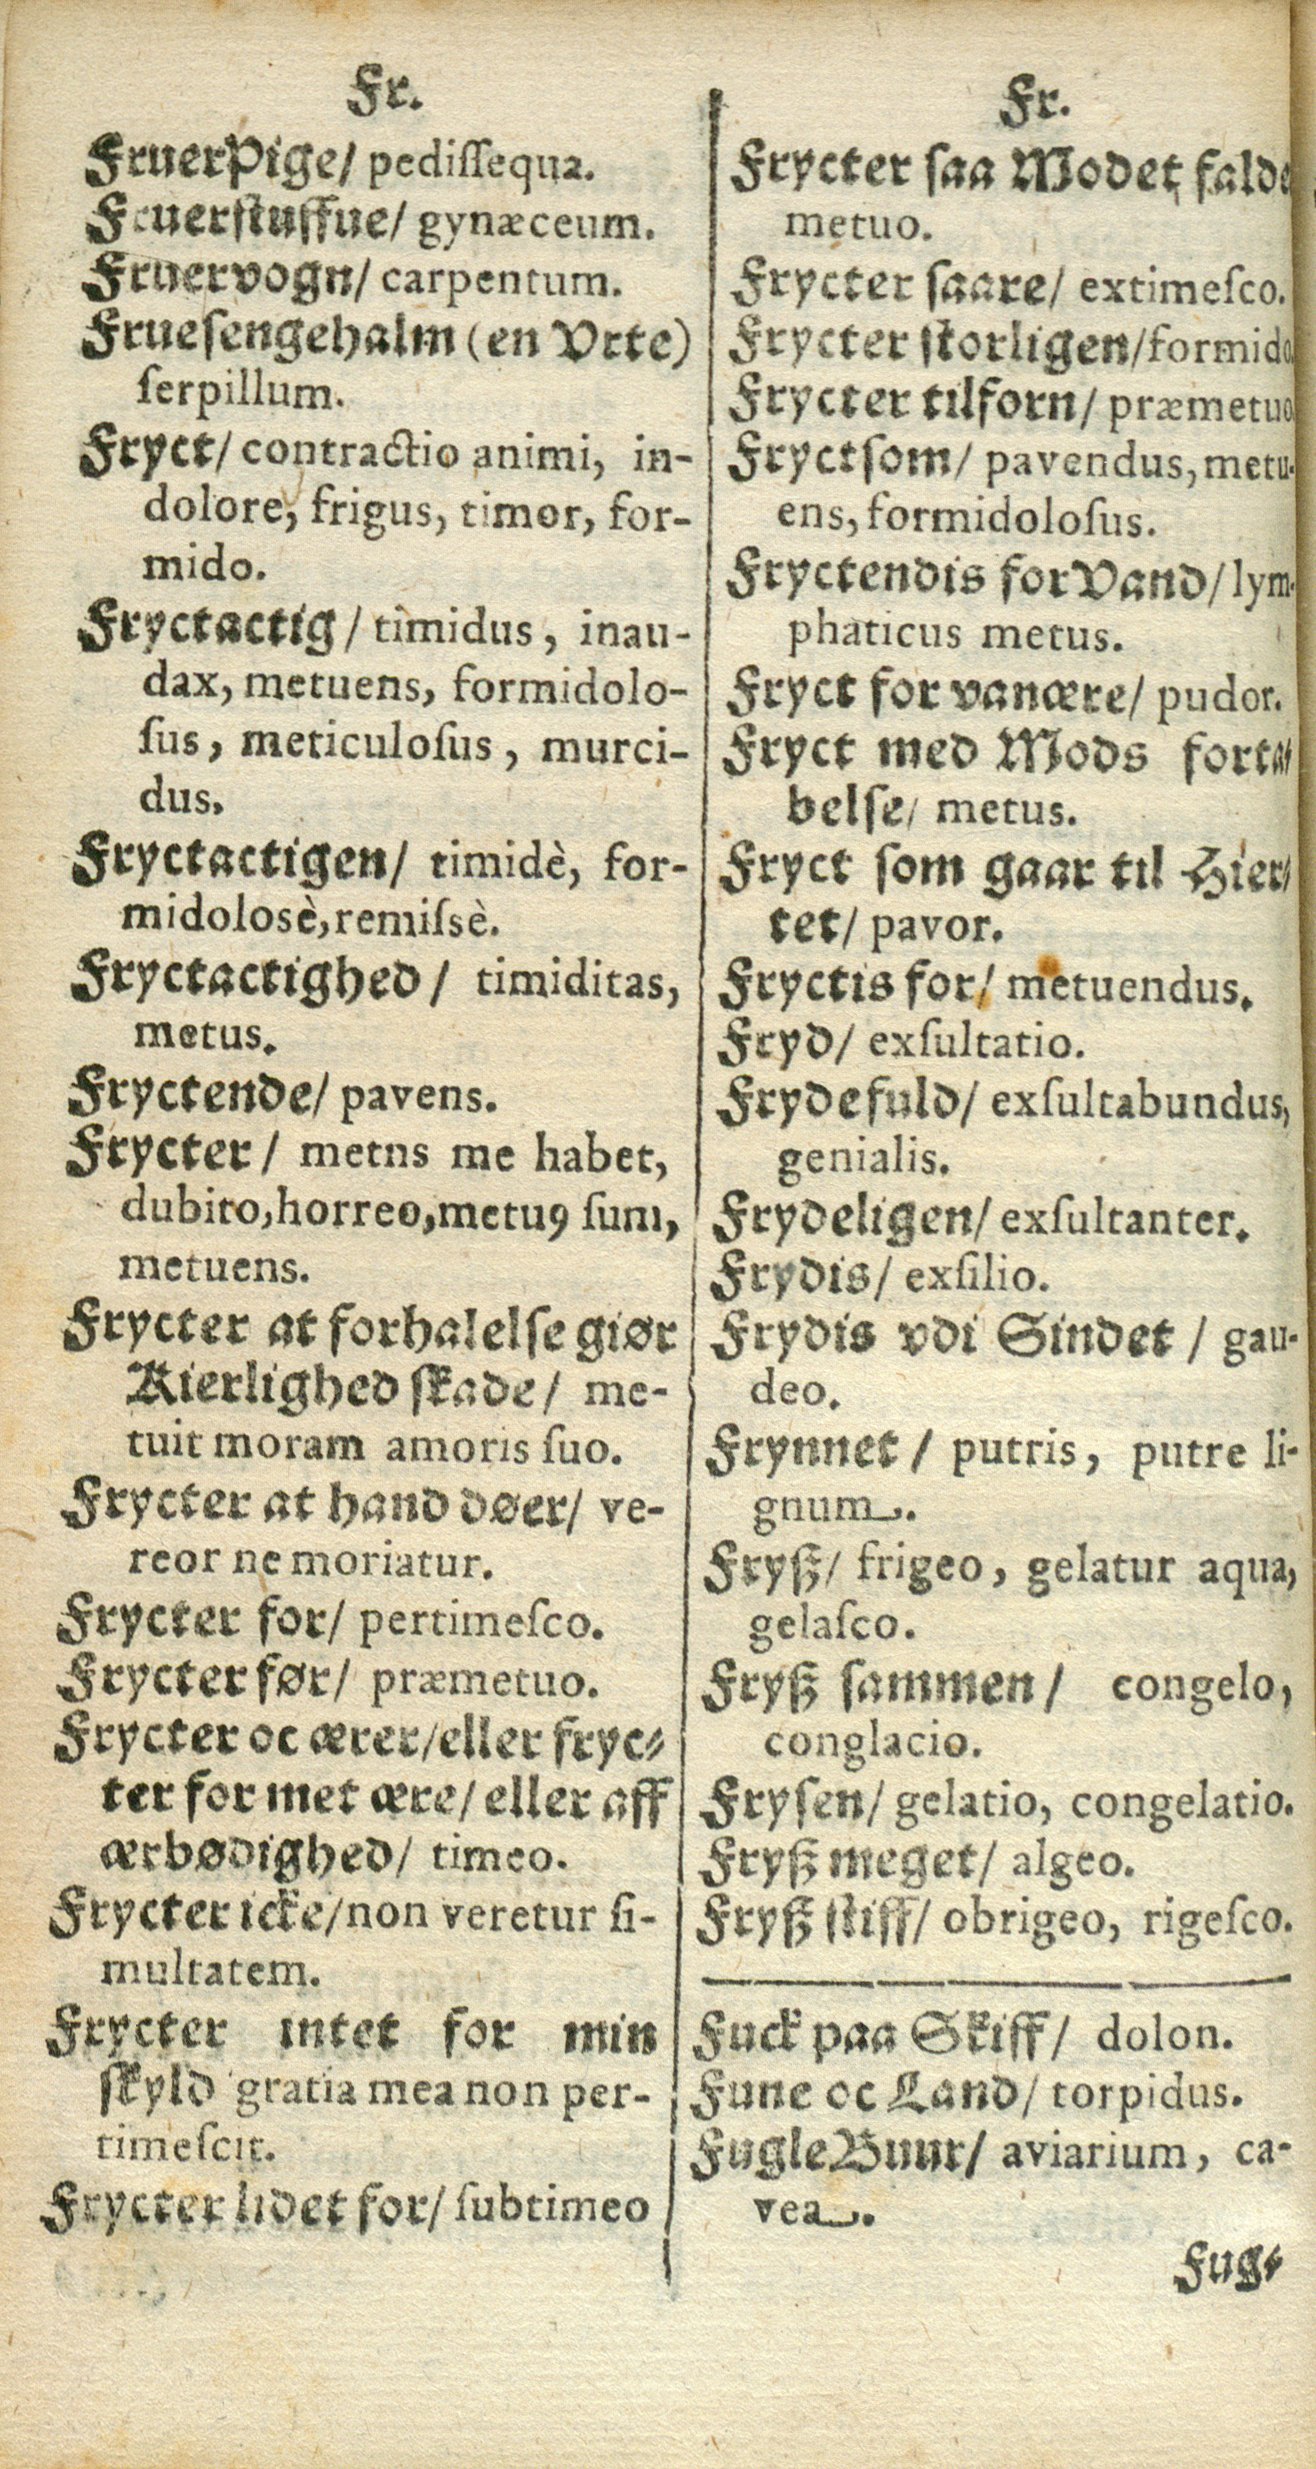 Fr.
FruerPige/ pediſſequa.
Fruerſtuffue/ gynæceum.
Fruervogn/ carpentum.
Frueſengehalm (en Vrte)
ſerpillum.
Fryct/ contractio animi, in-
dolore, frigus, timor, for-
mido.
Fryctactig/ timidus, inau-
dax, metuens, formidolo-
ſus, meticuloſus, murci-
dus.
Fryctactigen/ timidè, for-
midolosè, remiſsè.
Fryctactighed/ timiditas,
metus.
Fryctende/ pavens.
Frycter/ metns me habet,
dubito, horreo, metuꝰ ſum,
metuens.
Frycter at forhalelſe giør
Kierlighed ſkade/ me-
tuit moram amoris ſuo.
Frycter at hand døer/ ve-
reor ne moriatur.
Frycter for/ pertimeſco.
Frycter før/ præmetuo.
Frycter oc ærer/ eller fryc⸗
ter for met ære/ eller aff
ærbødighed/ timeo.
Frycter icke/ non veretur ſi-
multatem.
Frycter intet for min
ſkyld gratia mea non per-
timeſcit.
Frycter lidet for/ ſubtimeo
Fr.
Frycter ſaa Modet falde
metuo.
Frycter ſaare/ extimeſco.
Frycter ſtorligen/ formido.
Frycter tilforn/ præmetuo
Fryctſom/ pavendus, metu-
ens, formidoloſus.
Fryctendis for Vand/ lym-
phaticus metus.
Fryct for vanære/ pudor.
Fryct med Mods forta⸗
belſe/ metus.
Fryct ſom gaar til Hier⸗
tet/ pavor.
Fryctis for/ metuendus.
Fryd/ exſultatio.
Frydefuld/ exſultabundus,
genialis.
Frydeligen/ exſultanter.
Frydis/ exſilio.
Frydis vdi Sindet/ gau-
deo.
Frynnet/ putris, putre li-
gnum.
Fryß/ frigeo, gelatur aqua,
gelaſco.
Fryß ſammen/ congelo,
conglacio.
Fryſen/ gelatio, congelatio.
Fryß meget/ algeo.
Fryß ſtiff/ obrigeo, rigeſco.
Fuck paa Skiff/ dolon.
Fune oc Land/ torpidus.
FugleBuur/ aviarium, ca-
vea.
Fug⸗